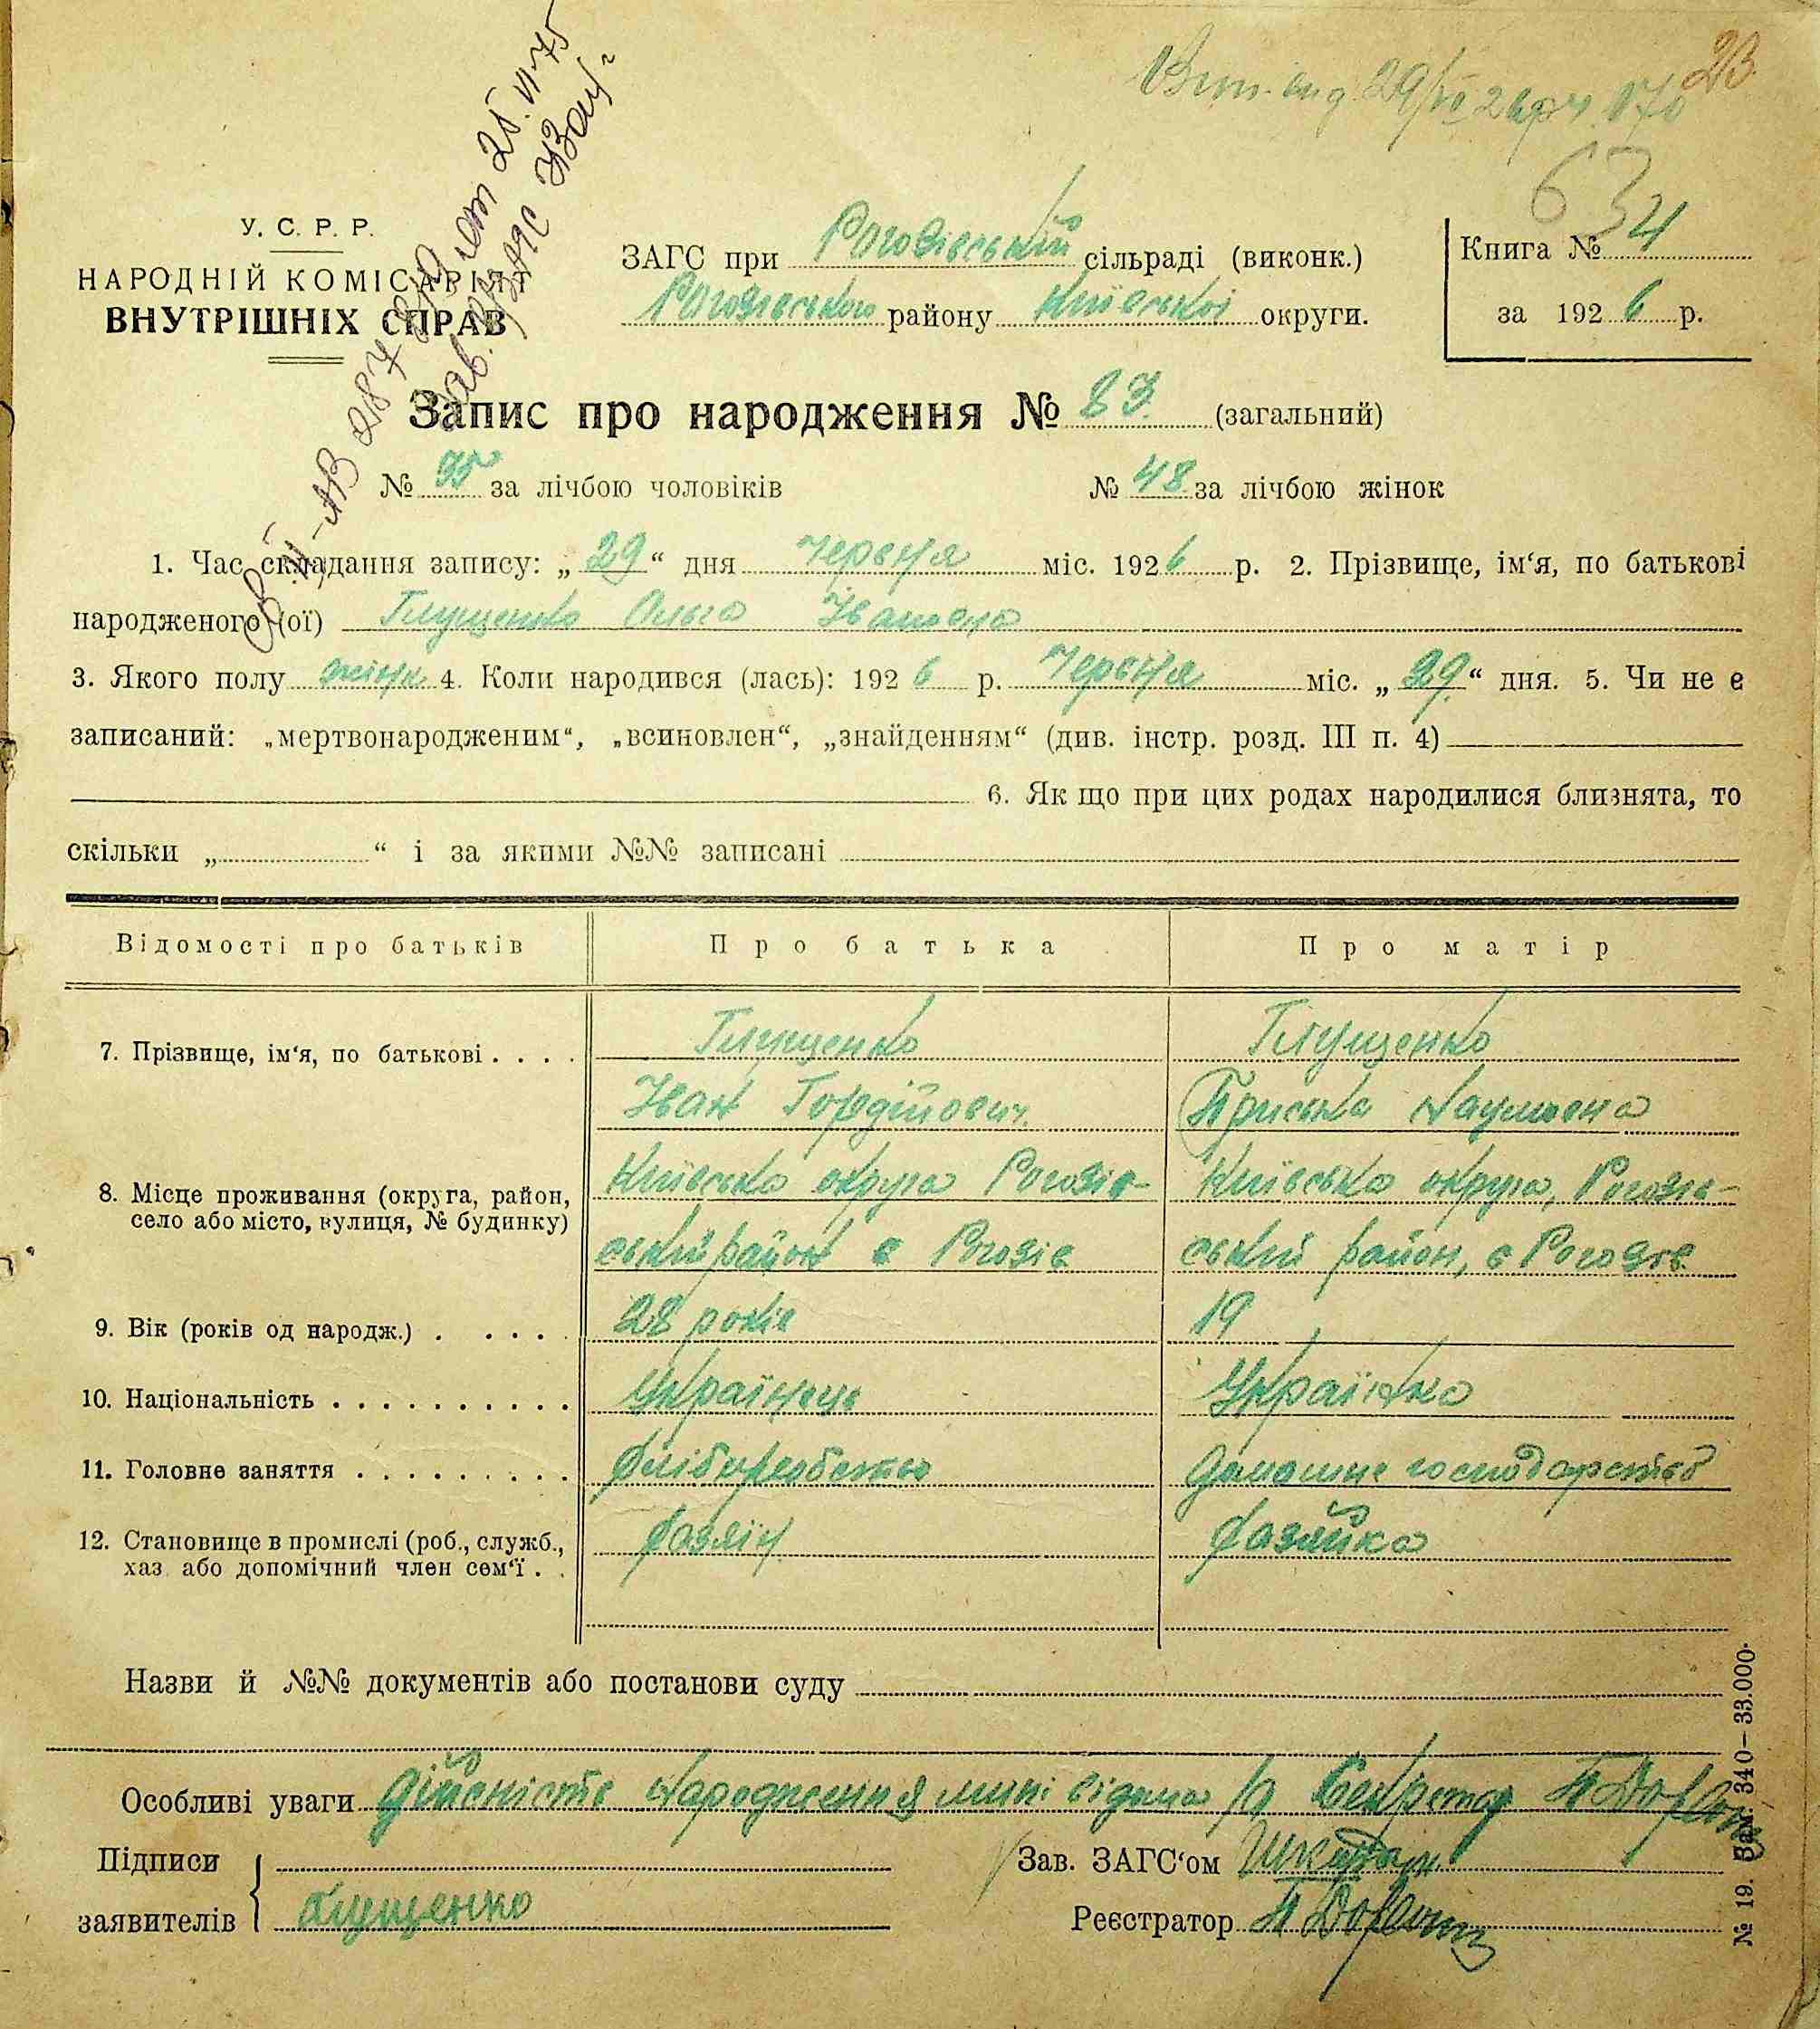 23
634
У. С. Р. Р.
НАРОДНІЙ КОМІСАРІЯТ
ВНУТРІШНІХ СПРАВ
ЗАГС при Рогозівській сільраді (виконк.)
Рогозівського району Київської округи.
Книга №
за 1926 р.
Запис про народження № 83 (загальний)
№ 35 за лічбою чоловіків № 48 за лічбою жінок
1. Час складання запису: „29“ дня Червня міс. 1926 р. 2. Прізвище, ім‘я, по батькові
народженого (ої) Глущенко Ольга Івановна
3. Якого полу жінк 4. Коли народився (лась): 1926 р. Червня міс. „29“ дня. 5. Чи не є
записаний: „мертвонародженим“, „всиновлен“, „знайденням“ (див. інстр. розд. III п. 4)
6. Як що при цих родах народилися близнята, то
скільки „ “ і за якими №№ записані
Відомості про батьків Про батька Про матір
7. Прізвище, ім‘я, по батькові Глущенко Глущенко
Іван Гордійович Приська Наумовна
8. Місце проживання (округа, район, Київська округа Рогозів- Київська округа, Рогозів-
село або місто, вулиця, № будинку) ський район с Рогозів ський район, с Рогозів
9. Вік (років од народж.) 28 років 19
10. Національність Українець Українка
11. Головне заняття Хліборобство Домашнє господарство
12. Становище в промислі (роб., служб., Хазяїн Хазяйка
хаз. або допомічний член сем‘ї
Назви й №№ документів або постанови суду
Особливі уваги Дійсність народження мині відома Секретар
Підписи
заявителів Глущенко
Зав. ЗАГС‘ом
Реєстратор
№ 19. Зам. 340—33.000.